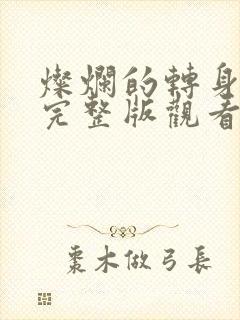 燦爛的轉身
完整版觀看
棗木做弓長